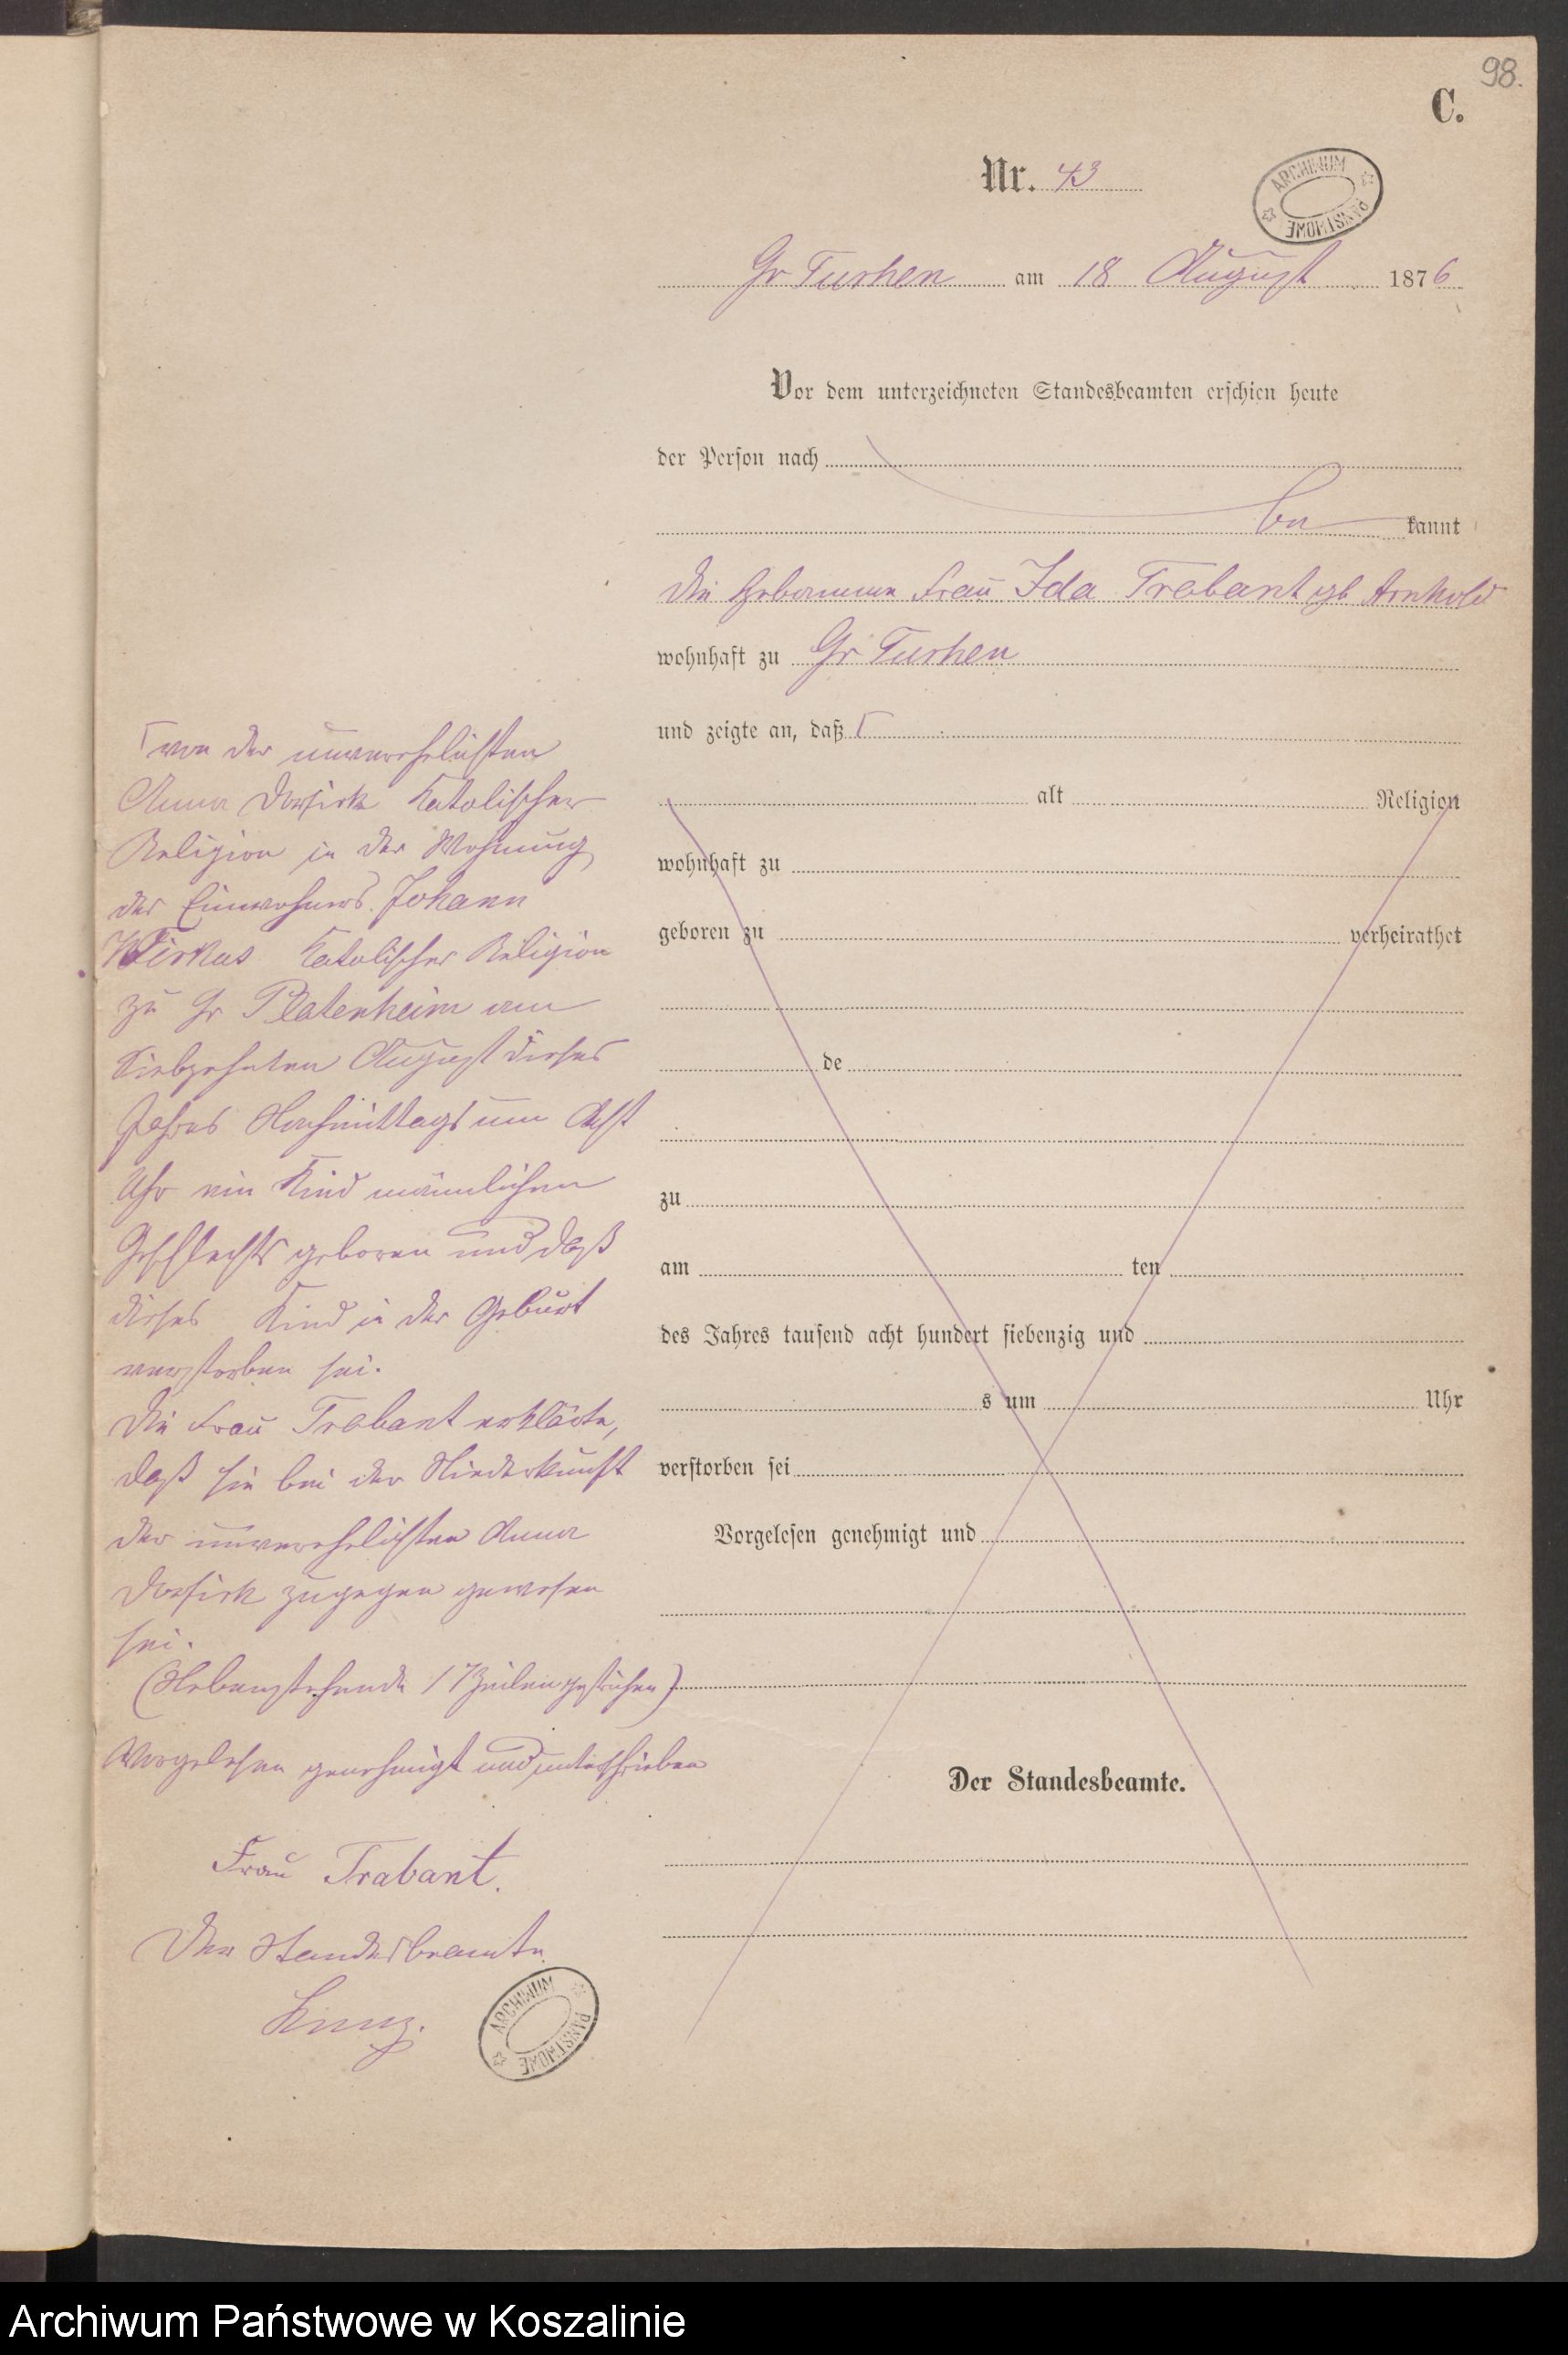 98.
C.
Nr. 43
ARCHIWUM PAŃSTWOWE
Gr Tuchen am 18 August 1876
Vor dem unterzeichneten Standesbeamten erschien heute
der Person nach
be kannt
die Hebamme Frau Ida Trabant gb Arnhold
wohnhaft zu Gr Tuchen
und zeigte an, daß Γ
alt Religion
wohnhaft zu
geboren zu verheirathet
de
zu
am ten
des Jahres tausend acht hundert siebenzig und
s um Uhr
verstorben sei
Vorgelesen genehmigt und
Der Standesbeamte.
Γ von der unverehelichten
Anna katolischer
Religion in der Wohnung
des Einwohners Johann
Wirkus katolischer Religion
zu Gr Platenheim am
siebzehnten August dieses
Jahres Nachmittags um Acht
Uhr ein Kind männlichen
Geschlechts geboren und daß
dieses Kind in der Geburt
verstorben sei.
Die Frau Trabant erklärte,
daß sie bei der Niederkunft
der unverehelichten Anna
zugegen gewesen
sei.
(Nebenstehende 17 Zeilen gestrichen)
Vorgelesen genehmigt und unterschrieben
Frau Trabant.
Der Standesbeamte
ARCHIWUM PAŃSTWOWE
Archiwum Państwowe w Koszalinie